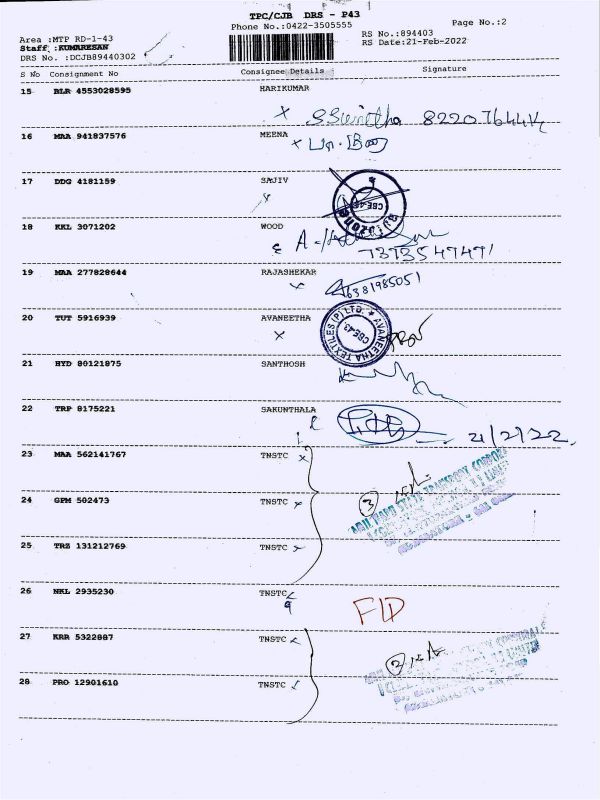 TPC/CJB DRS - P43
Phone No.:0422-3505555
Page No.:2
Area :MTP RD-1-43
Staff :KUMARESAN
DRS No. :DCJB89440302
RS No.:894403
RS Date:21-Feb-2022
S No Consignment No Consignee Details Signature
15 BLR 4553028595 HARIKUMAR
16 MAA 941837576 MEENA
17 DDG 4181159 SAJIV
18 KKL 3071202 WOOD
7373547471
19 MAA 277828644 RAJASHEKAR
6381985051
20 TUT 5916939 AVANEETHA
AVANEETHA TEXTILES (P) LTD. CBE-43
21 HYD 80121875 SANTHOSH
22 TRP 8175221 SAKUNTHALA
21/2/22
23 MAA 562141767 TNSTC
24 GPM 502473 TNSTC
3
25 TRZ 131212769 TNSTC
26 NKL 2935230 TNSTC
27 KRR 5322887 TNSTC
2
28 PRO 12901610 TNSTC